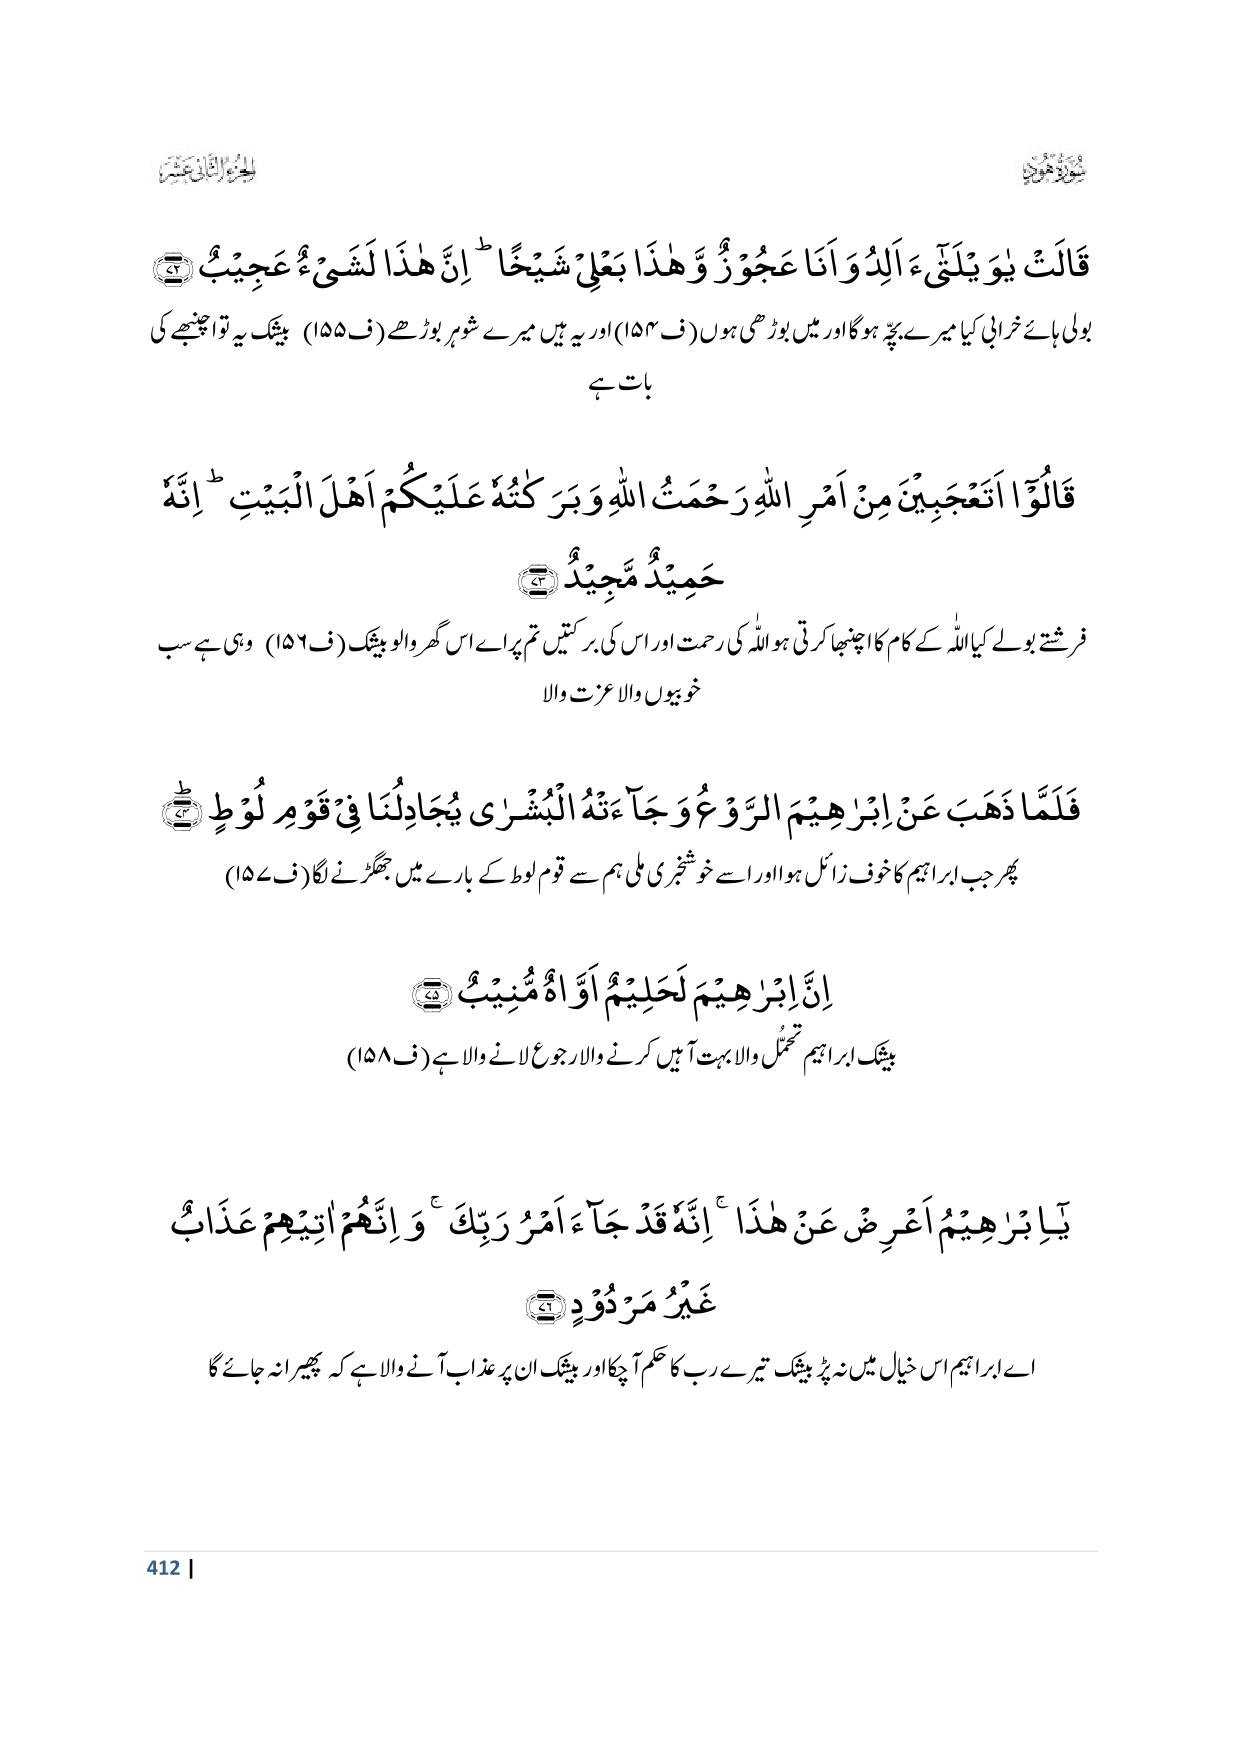 سُوْرَةُ هُوْدٍ
الجزء الثانی عشر
قَالَتْ یٰوَیْلَتٰۤى ءَاَلِدُ وَ اَنَا عَجُوْزٌ وَّ هٰذَا بَعْلِیْ شَیْخًاؕ اِنَّ هٰذَا لَشَیْءٌ عَجِیْبٌ ﴿۷۲﴾
بولی ہائے خرابی کیا میرے بچّہ ہوگا اور میں بوڑھی ہوں (ف۱۵۴) اور یہ ہیں میرے شوہر بوڑھے (ف۱۵۵) بیشک یہ تو اچنبھے کی
بات ہے
قَالُوْۤا اَتَعْجَبِیْنَ مِنْ اَمْرِ اللّٰهِ رَحْمَتُ اللّٰهِ وَ بَرَكٰتُهٗ عَلَیْكُمْ اَهْلَ الْبَیْتِؕ اِنَّهٗ
حَمِیْدٌ مَّجِیْدٌ ﴿۷۳﴾
فرشتے بولے کیا اللّٰہ کے کام کا اچنبھا کرتی ہو اللّٰہ کی رحمت اور اس کی برکتیں تم پر اے اس گھر والو بیشک (ف۱۵۶) وہی ہے سب
خوبیوں والا عزت والا
فَلَمَّا ذَهَبَ عَنْ اِبْرٰهِیْمَ الرَّوْعُ وَ جَآءَتْهُ الْبُشْرٰى یُجَادِلُنَا فِیْ قَوْمِ لُوْطٍؕ ﴿۷۴﴾
پھر جب ابراہیم کا خوف زائل ہوا اور اسے خوشخبری ملی ہم سے قوم لوط کے بارے میں جھگڑنے لگا (ف۱۵۷)
اِنَّ اِبْرٰهِیْمَ لَحَلِیْمٌ اَوَّاهٌ مُّنِیْبٌ ﴿۷۵﴾
بیشک ابراہیم تحمُّل والا بہت آہیں کرنے والا رجوع لانے والا ہے (ف۱۵۸)
یٰۤـاِبْرٰهِیْمُ اَعْرِضْ عَنْ هٰذَاۚ اِنَّهٗ قَدْ جَآءَ اَمْرُ رَبِّكَۚ وَ اِنَّهُمْ اٰتِیْهِمْ عَذَابٌ
غَیْرُ مَرْدُوْدٍ ﴿۷۶﴾
اے ابراہیم اس خیال میں نہ پڑ بیشک تیرے رب کا حکم آچکا اور بیشک ان پر عذاب آنے والا ہے کہ پھیرا نہ جائے گا
412 |